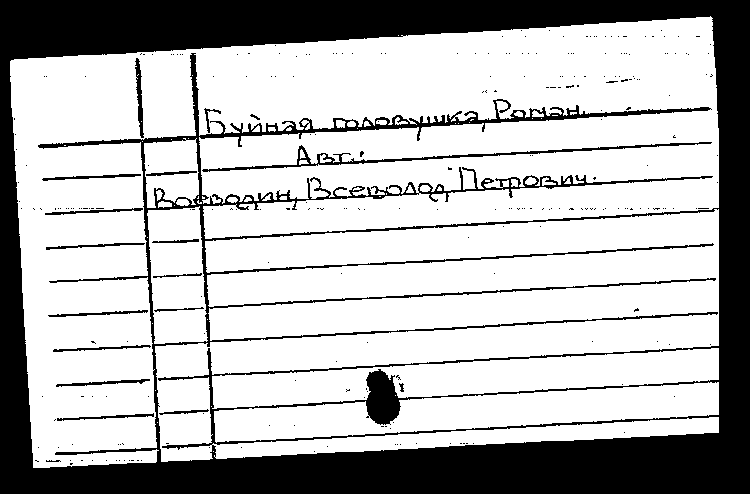 Буйная головушка, Роман.
Авт.:
Воеводин, Всеволод Петрович.